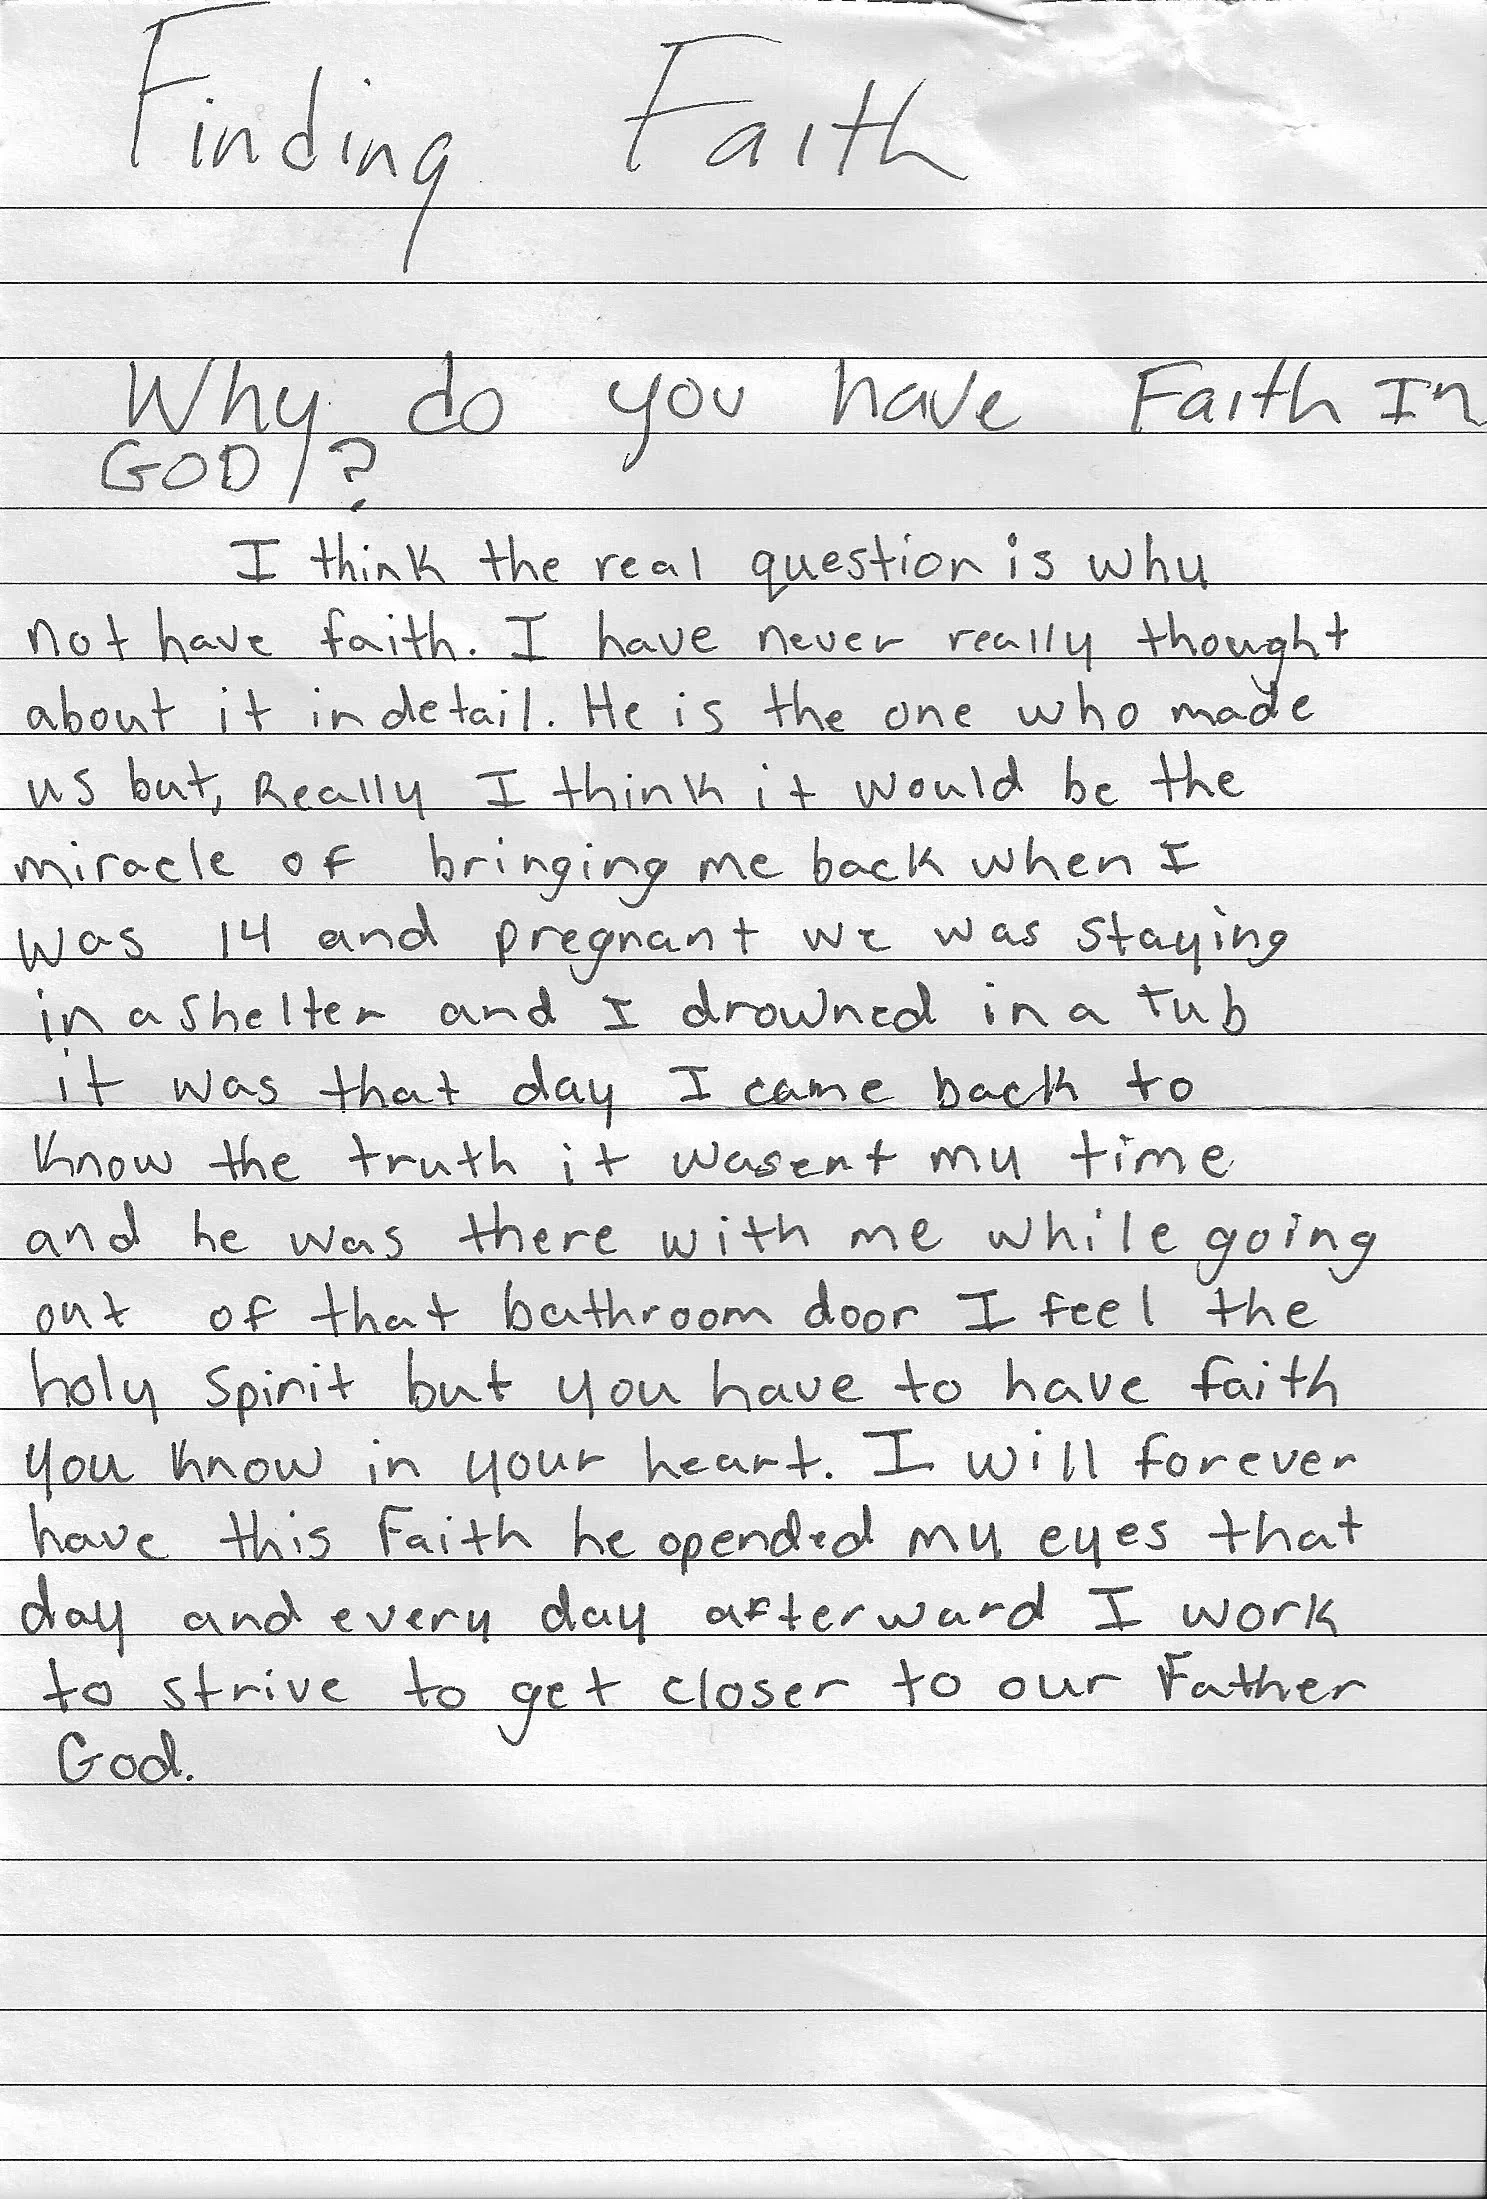 Finding Faith
Why do you have Faith In
GOD/?
I think the real question is why
not have faith. I have never really thought
about it in detail. He is the one who made
us but, Really I think it would be the
miracle of bringing me back when I
was 14 and pregnant we was staying
in a shelter and I drowned in a tub
it was that day I came back to
know the truth it wasent my time
and he was there with me while going
out of that bathroom door I feel the
holy spirit but you have to have faith
you know in your heart. I will forever
have this Faith he opended my eyes that
day and every day afterward I work
to strive to get closer to our Father
God.